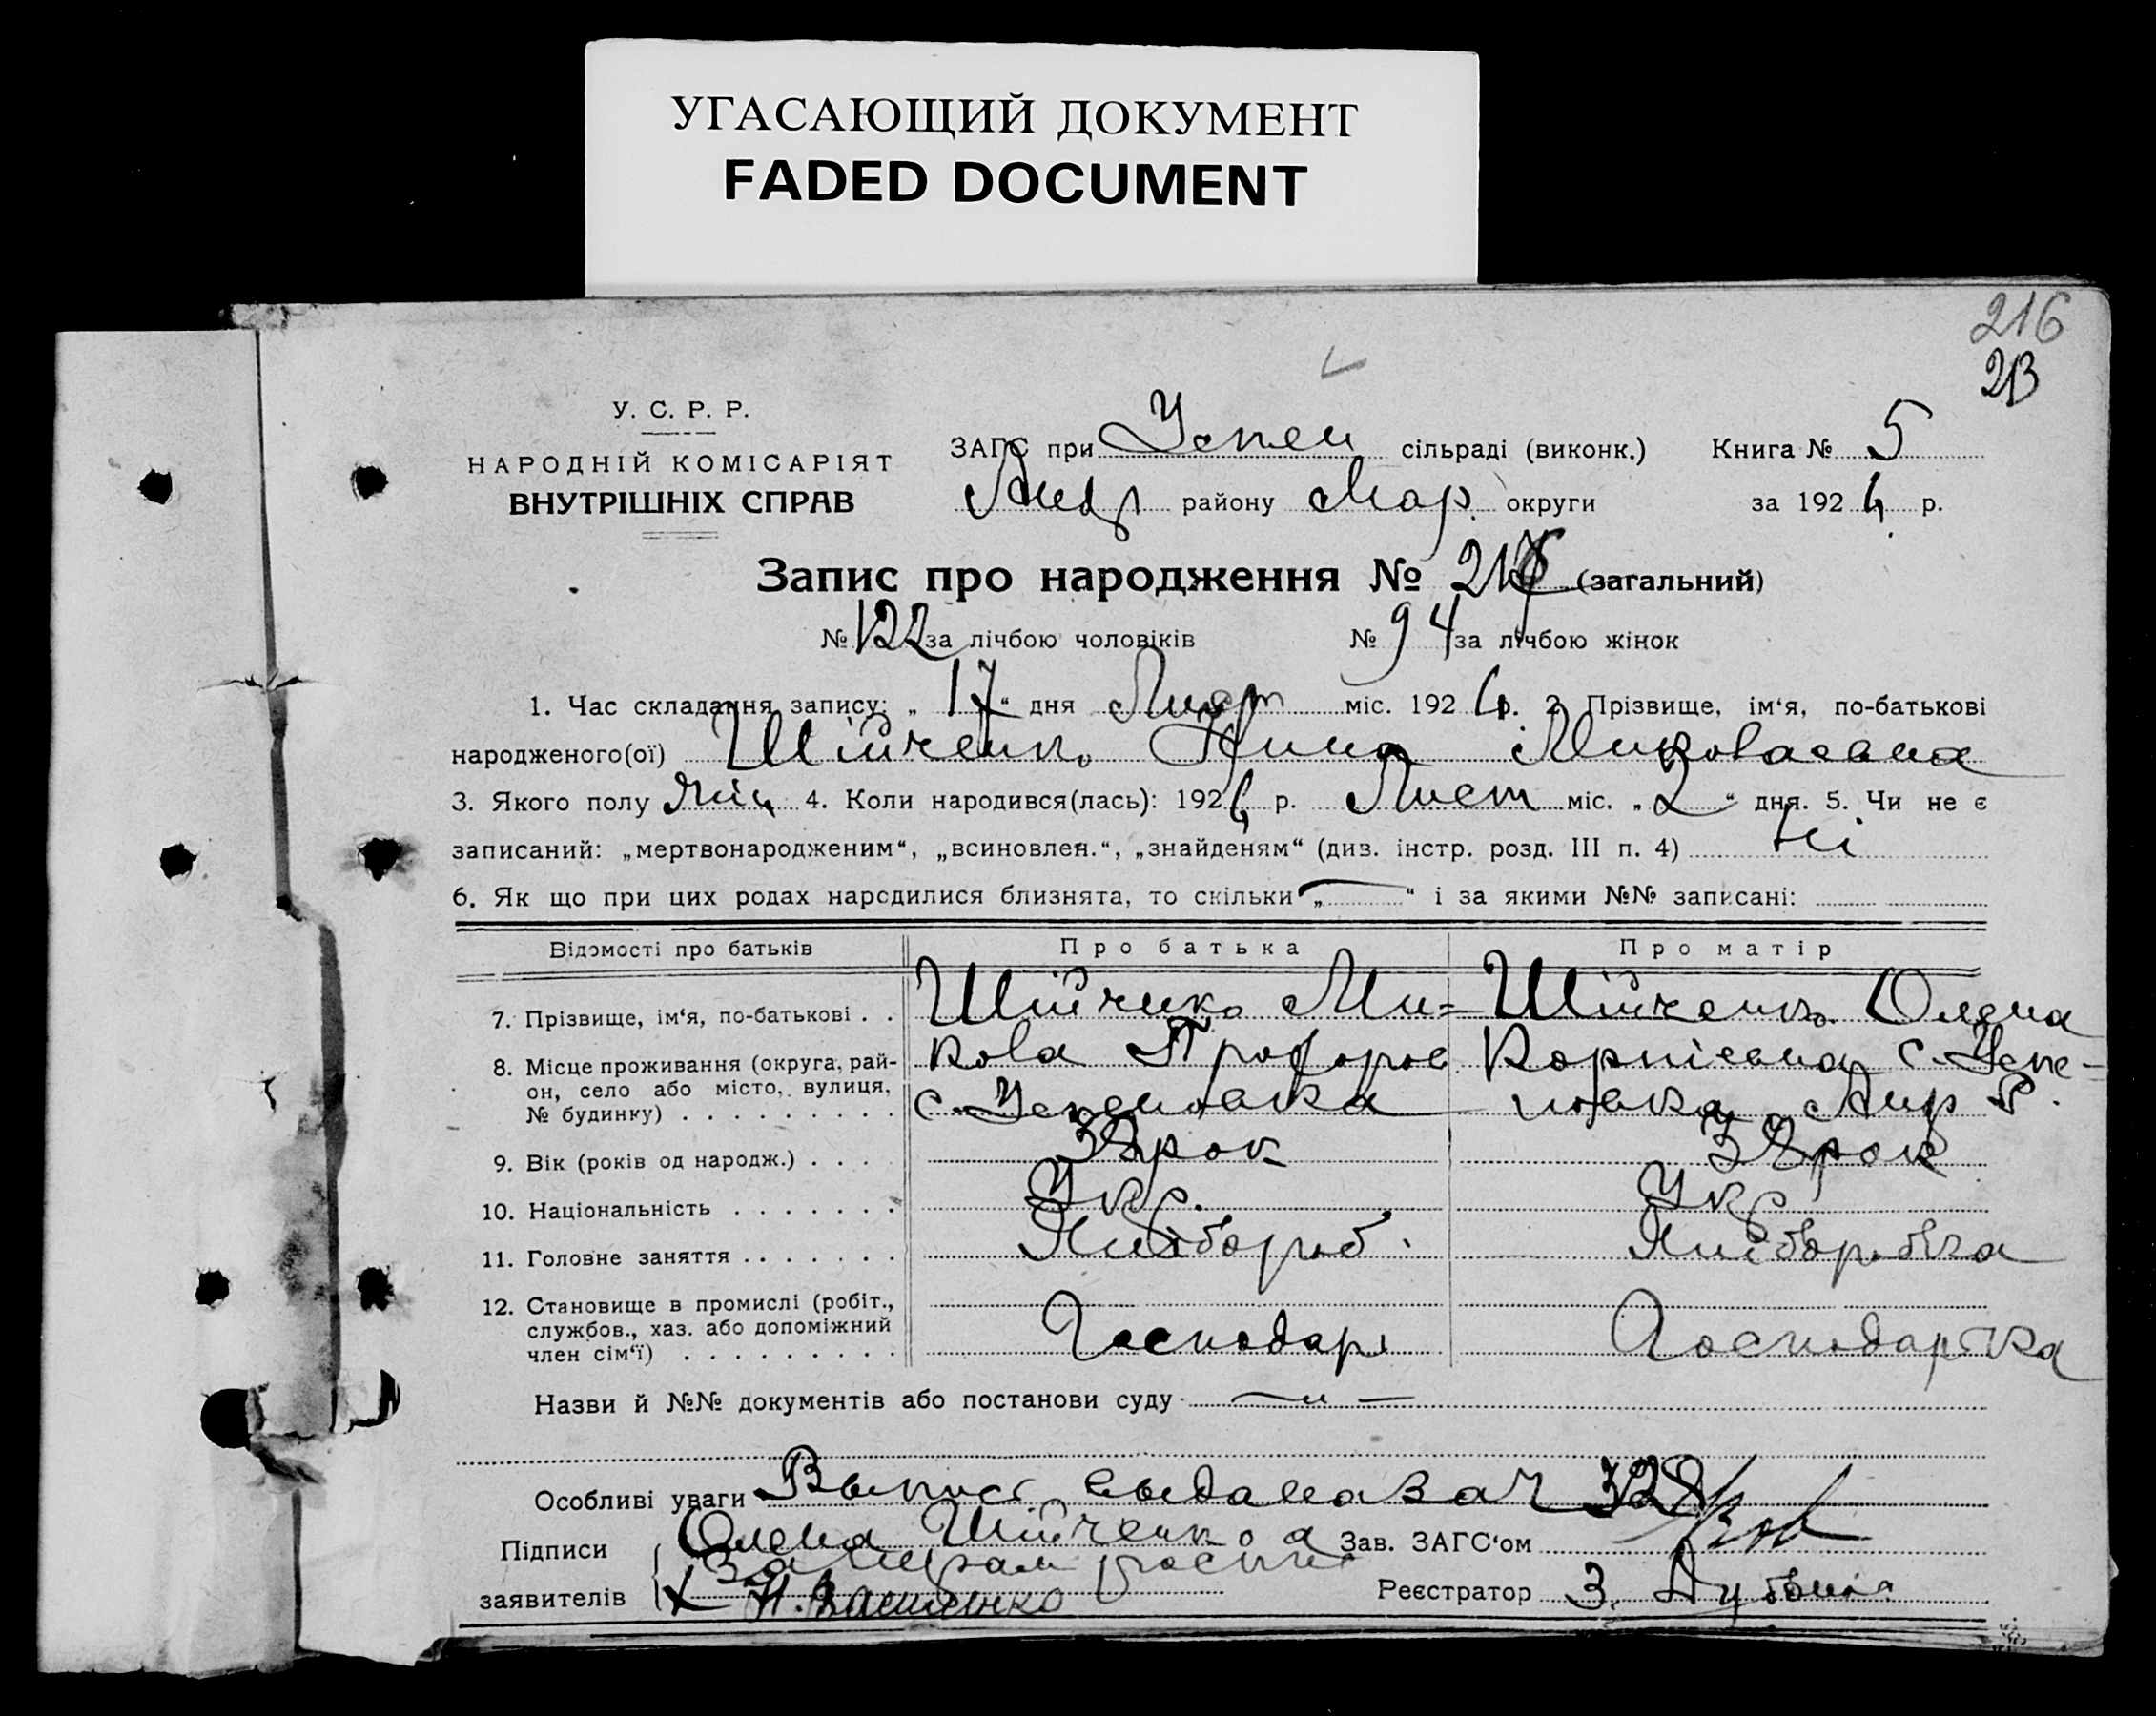 УГАСАЮЩИЙ ДОКУМЕНТ
FADED DOCUMENT
216
213
У. С. Р. Р.
НАРОДНІЙ КОМІСАРІЯТ
ВНУТРІШНІХ СПРАВ
ЗАГС при Успен сільраді (виконк.) Книга № 5
Андр району Мар. округи за 192 р.
Запис про народження № (загальний)
№ 122 за лічбою чоловіків № 94 за лічбою жінок
1. Час складання запису: „ 17 “ дня Лист міс. 192 р. 2. Прізвище, ім‘я, по-батькові
народженого(ої) Шійченко Нина Миколаевна
3. Якого полу жін 4. Коли народився(лась): 192 р. Лист міс. „ 2 “ дня. 5. Чи не є
записаний: „мертвонародженим“, „всиновлен.“, „знайденям“ (див. інстр. розд. III п. 4) Ні
6. Як що при цих родах народилися близнята, то скільки „ — “ і за якими №№ записані:
Відомості про батьків Про батька Про матір
7. Прізвище, ім‘я, по-батькові . . Шійченко Ми= Шійченко Олена
8. Місце проживання (округа, рай- кола Корніевна с. Успе=
он, село або місто, вулиця, с. Успеновка новка Андр Р.
№ будинку) . . . . . . . . .
9. Вік (років од народж.) . . . . рок рок
10. Національність . . . . . . . Укр. Укр
11. Головне заняття . . . . . . . Хлібороб. Хлібороб
12. Становище в промислі (робіт.,
службов., хаз. або допоміжний Господарь Господарька
член сім‘ї) . . . . . . . . .
Назви й №№ документів або постанови суду — „ —
Особливі уваги Выпис 328
Підписи Олена Шійченко а Зав. ЗАГС‘ом
заявителів Реєстратор З.